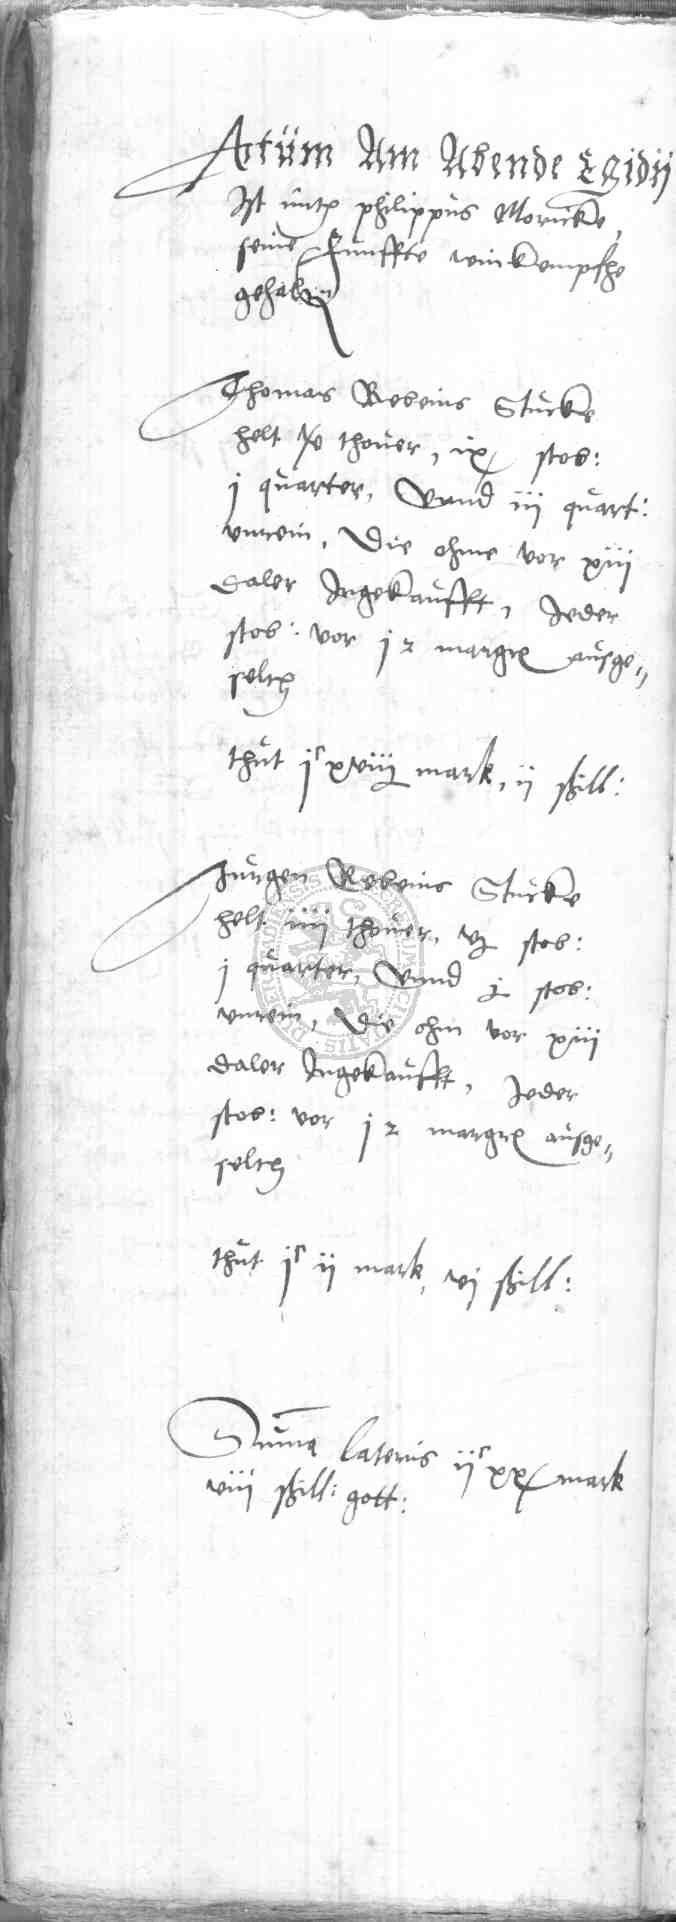 Actum Am Abende Egidij
Ist mitt philippus Moricke,
seine Funffte winkempfhe
gehaltenn
Thomas Rebeins Stucke
helt thouer, ix stob:
j quarter, Vnnd iij quart:
vnrein, Die ohme vor xiij
daler Ingekaufft, Jeder
stob: vor j margk ausge„
seltt
thut jc xviij mark, ij schill:
Jurgen Rebeins Stucke
helt iiij thouer, vj stob:
j quarter, Vnnd j stob:
vnrein, Die ohm vor xiij
daler Ingekaufft, Jeder
stob: vor j margk ausge„
seltt
thut jc ij mark, vj schill:
Summa lateris ijc xx mark
viij schill: gott: